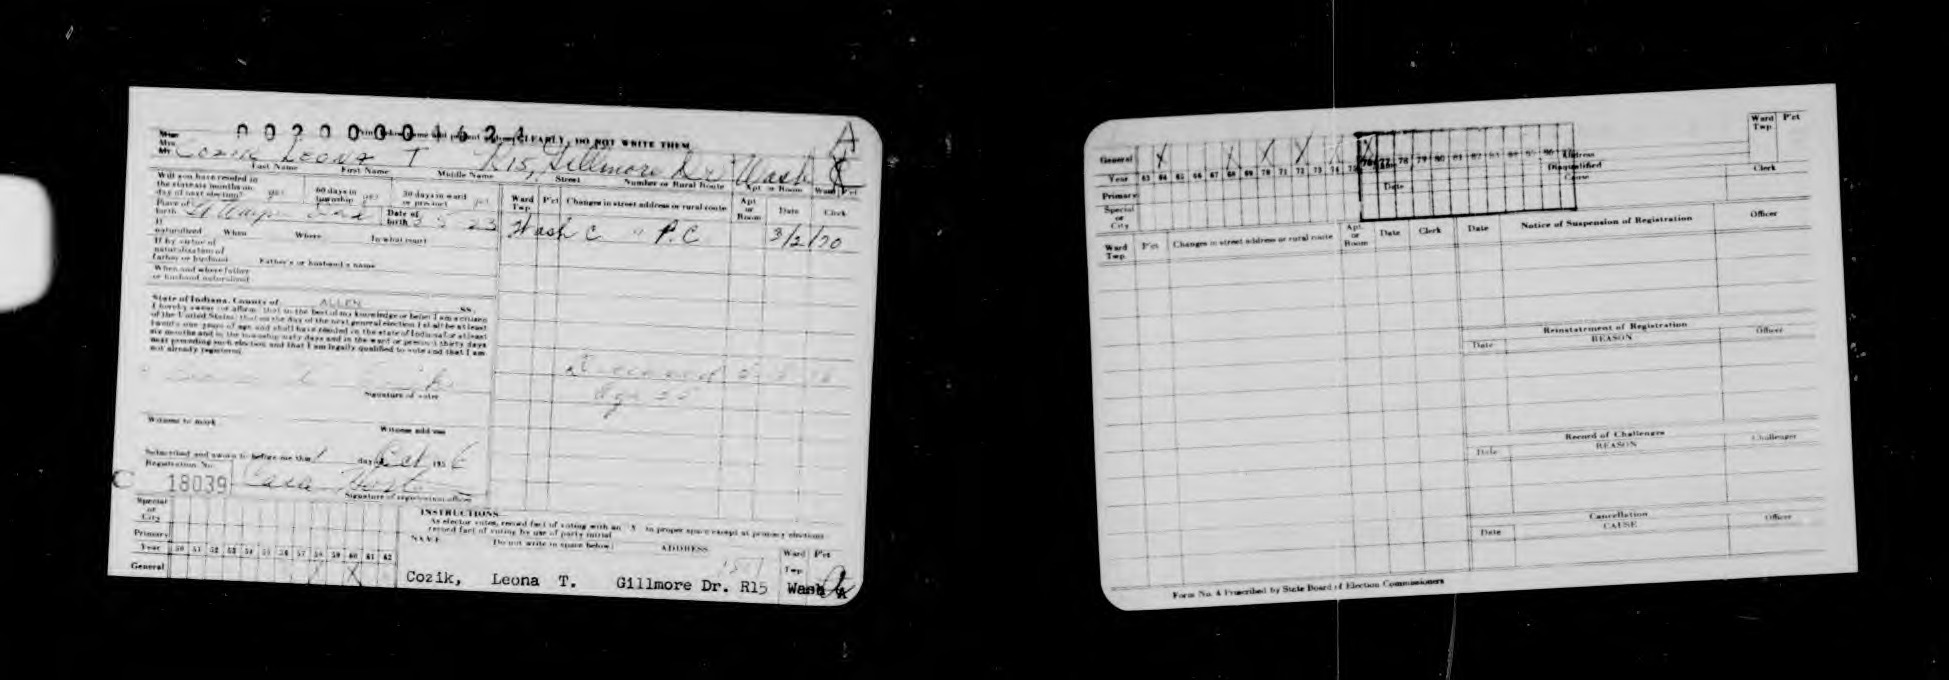 00200001621
Print Name and present address CLEARLY, DO NOT WRITE THEM
Miss
Mrs
Mr COZIK LEONA T R15, Gillmore Dr Wash C A
Last Name First Name Middle Name Street Number or Rural Route Apt or Room Ward Pct
Will you have resided in
the state six months on
day of next election? yes
60 days in
township yes
30 days in ward
or precinct yes
Place of
birth Ft Wayne Ind
Date of
birth
If
naturalized When Where In what court
If by virtue of
naturalization of
father or husband Father's or husband's name
When and where father
or husband naturalized
State of Indiana, County of ALLEN SS.
I hereby swear (or affirm) that to the best of my knowledge or belief I am a citizen
of the United States; that on the day of the next general election I shall be at least
twenty one years of age and shall have resided in the state of Indiana for at least
six months and in the township sixty days and in the ward or precinct thirty days
next preceding such election and that I am legally qualified to vote and that I am
not already registered
Signature of voter
Witness to mark
Witness address
Subscribed and sworn to before me this 1 day Oct 1956
Registration No.
C 18039
Signature of registration officer
Ward
Twp
P'ct
Changes in street address or rural route
Apt
or
Room
Date
Clerk
Wash C " P.C 3/2/70
Special
or
City
Primary
Year 50 51 52 53 54 55 56 57 58 59 60 61 62
General X
INSTRUCTIONS
As elector votes, record fact of voting with an X in proper space except at primary elections
record fact of voting by use of party initial
NAME Do not write in space below ADDRESS Ward P'ct
Twp
Cozik, Leona T. Gillmore Dr. R15 Wash A
General X X X X X X
Year 63 64 65 66 67 68 69 70 71 72 73 74 75 76 77 78 79 80 81 82 83 84 85 86
Primary
Special
or
City
Address
Disqualified
Date Cause
Clerk
Ward
Twp
P'ct
Ward
Twp
P'ct
Changes in street address or rural route
Apt
or
Room
Date
Clerk
Date
Notice of Suspension of Registration
Officer
Reinstatement of Registration
Date REASON Officer
Record of Challenges
Date REASON Challenger
Cancellation
Date CAUSE Officer
Form No. 4 Prescribed by State Board of Election Commissioners